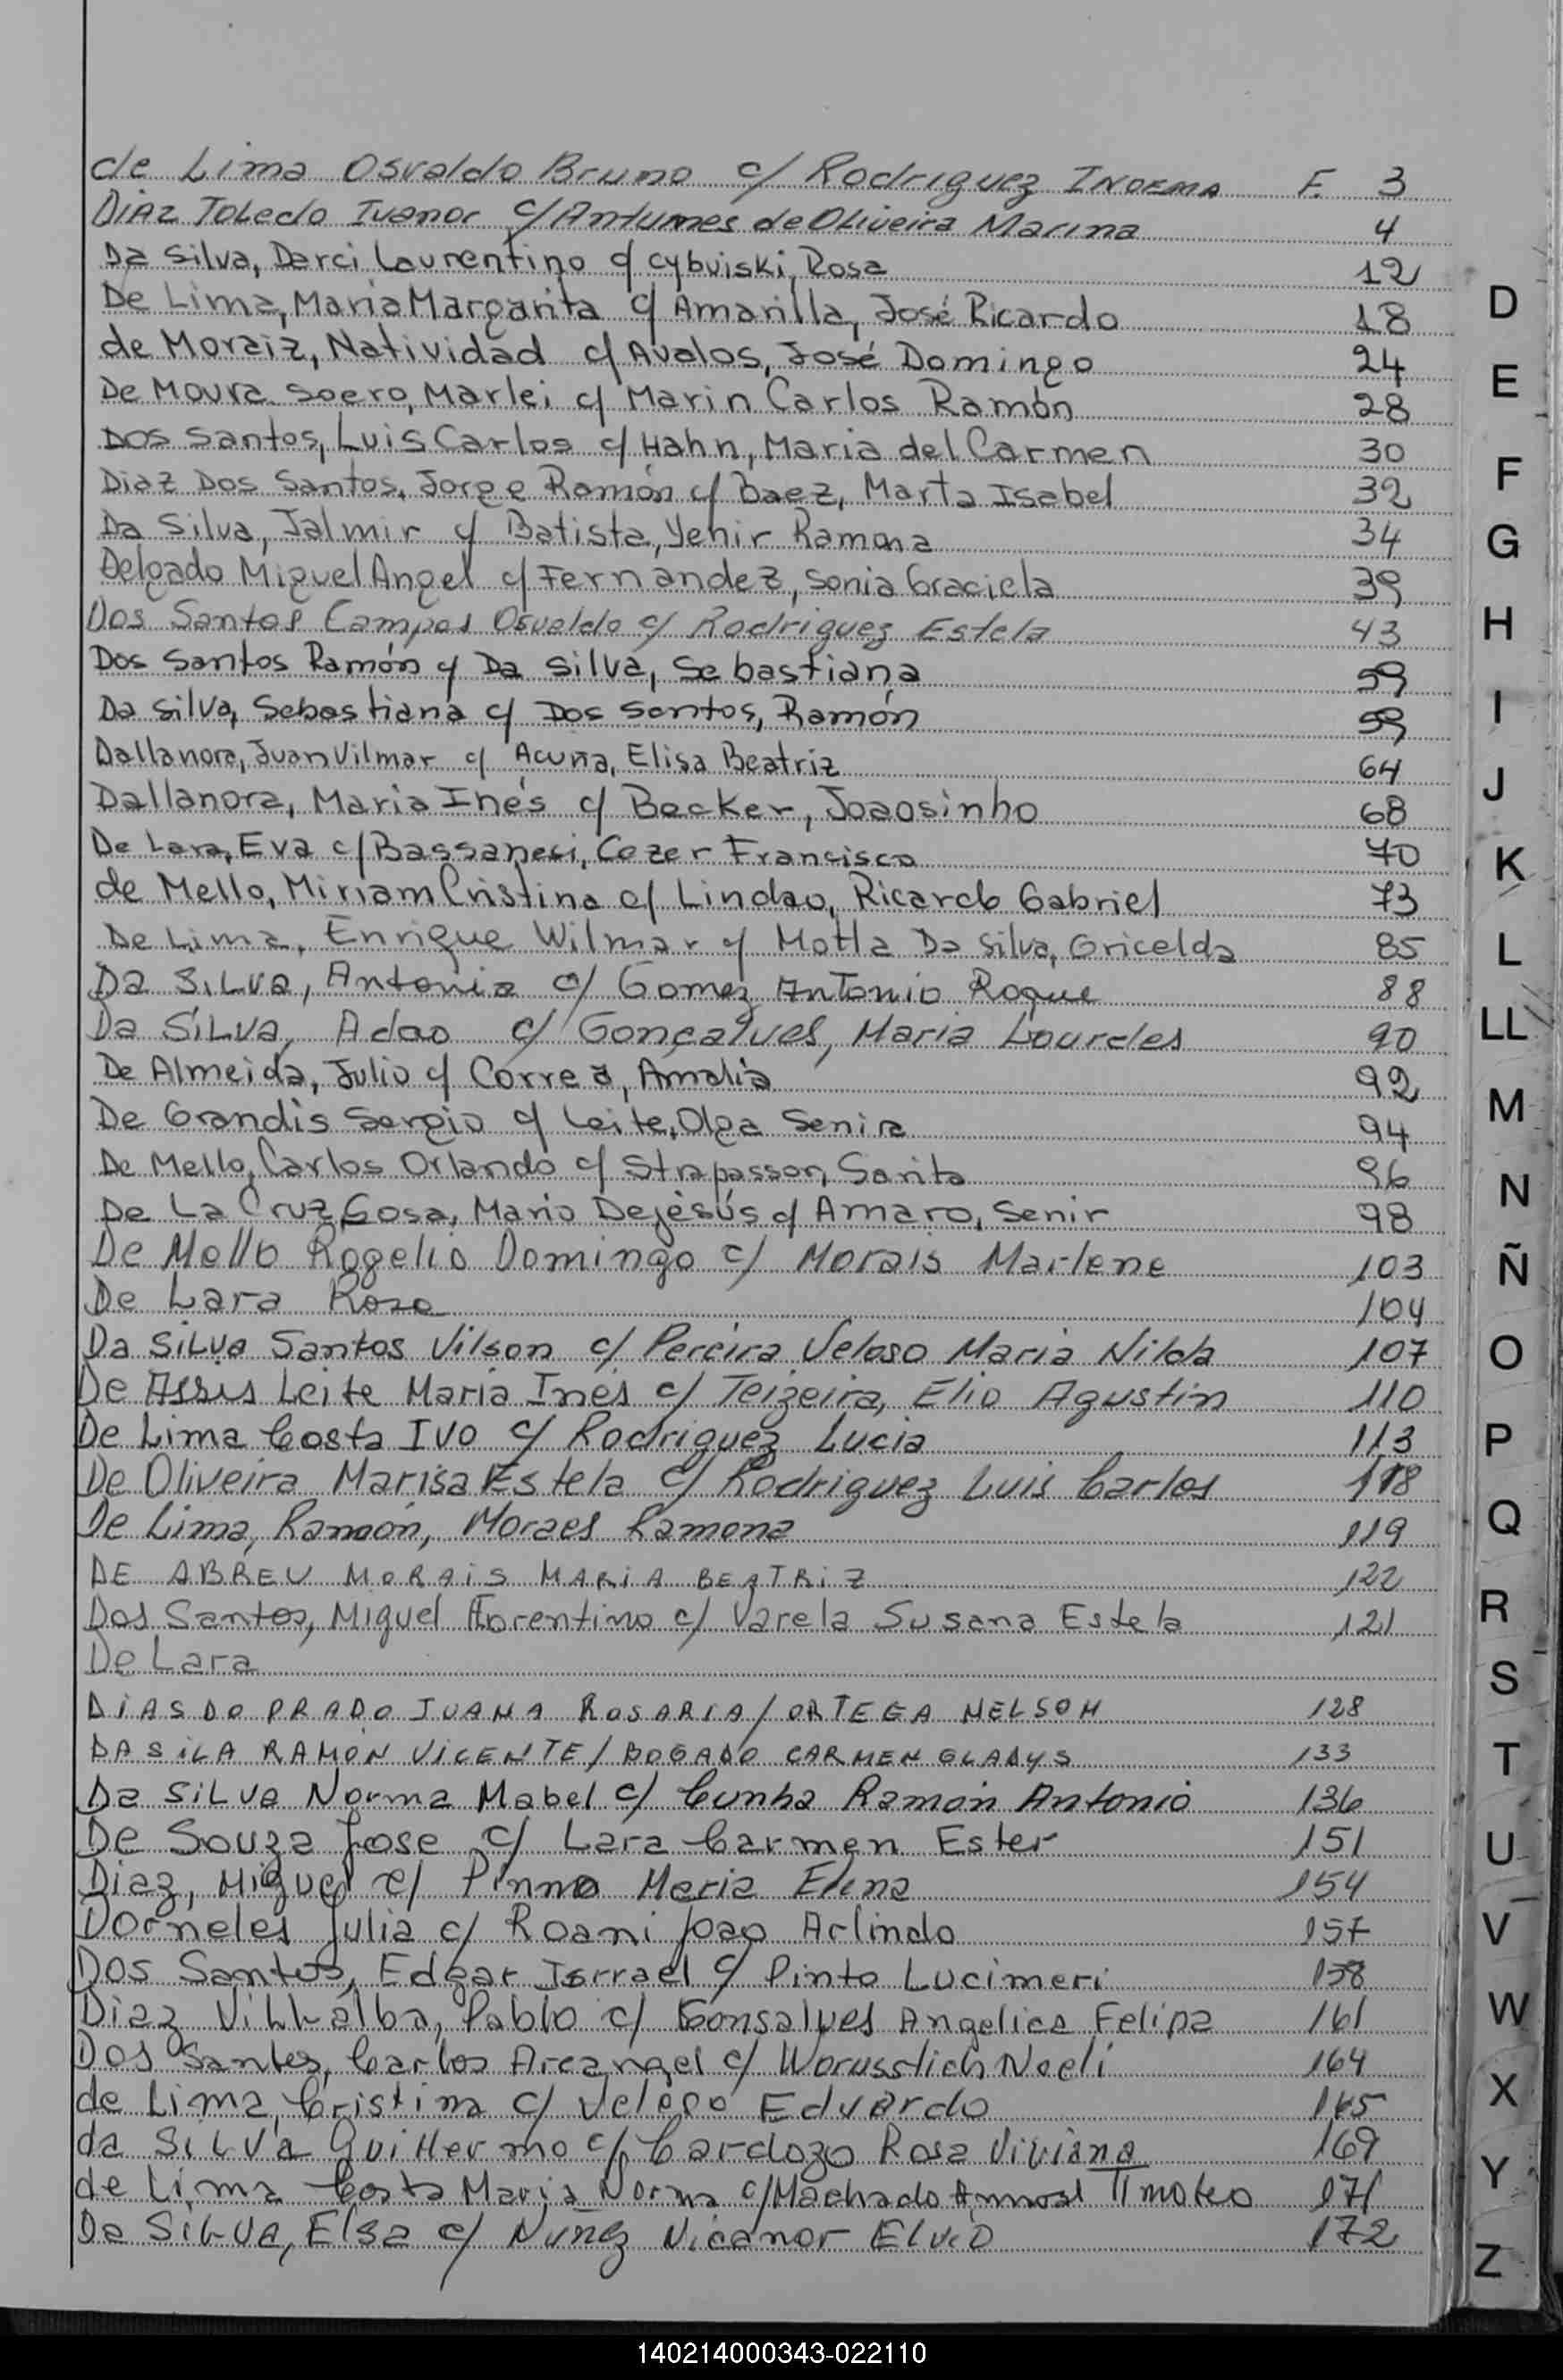 de Lima Osvaldo Bruno c/ Rodriguez INOEMA F. 3
DIAZ TOLEDO Ivanor c/ Antumes de Oliveira Marina 4
Da Silva, Darci Laurentino c/ Cybuiski, Rosa 12
De Lima, Maria Margarita c/ Amarilla, José Ricardo 18
de Moraiz, Natividad c/ Avalos, José Domingo 24
De Moura Soero, Marlei c/ Marin Carlos Ramón 28
Dos Santos, Luis Carlos c/ Hahn, Maria del Carmen 30
Diaz Dos Santos, Jorge Ramón c/ Baez, Marta Isabel 32
Da Silva, Jalmir c/ Batista, Yenir Ramona 34
Delgado Miguel Angel c/ Fernandez, Sonia Graciela 39
Dos Santos Campos Osvaldo c/ Rodriguez Estela 43
Dos Santos Ramón c/ Da Silva, Sebastiana 59
Da Silva, Sebastiana c/ Dos Santos, Ramón 59
Dallanora, Juan Vilmar c/ Acuña, Elisa Beatriz 64
Dallanora, Maria Inés c/ Becker, Joaosinho 68
De Lara, Eva c/ Bassanesi, Cezer Francisco 70
de Mello, Miriam Cristina c/ Lindao, Ricardo Gabriel 73
De Lima, Enrique Wilmar c/ Motta Da Silva, Gricelda 85
Da Silva, Antonia c/ Gomez Antonio Roque 88
Da Silva, Adao c/ Gonçalves, Maria Lourdes 90
De Almeida, Julio c/ Correa, Amalia 92
De Grandis Sergio c/ Leite, Olga Senira 94
De Mello, Carlos Orlando c/ Strapasson, Sarita 96
De La Cruz Gosa, Mario Dejesús c/ Amaro, Senir 98
De Mello Rogelio Domingo c/ Morais Marlene 103
De Lara Rosa 104
Da Silva Santos Vilson c/ Pereira Veloso Maria Nilda 107
De Assis Leite Maria Inés c/ Teizeira, Elio Agustin 110
De Lima Costa Ivo c/ Rodriguez Lucia 113
De Oliveira Marisa Estela c/ Rodriguez Luis Carlos 118
De Lima, Ramón, Moraes Ramona 119
DE ABREU MORAIS MARIA BEATRIZ 122
Dos Santos, Miguel Florentino c/ Varela Susana Estela 121
De Lara
DIAS DO PRADO JUANA ROSARIA / ORTEGA NELSON 128
DA SILA RAMON VICENTE / BOGADO CARMEN GLADYS 133
Da Silva Norma Mabel c/ Cunha Ramón Antonio 136
De Souza Jose c/ Lara Carmen Ester 151
Diaz, Miguel c/ Pinno Maria Elena 154
Dorneles Julia c/ Roani Joao Arlindo 157
Dos Santos, Edgar Isrrael c/ Pinto Lucimeri 158
Diaz Villalba, Pablo c/ Gonsalves Angelica Felipa 161
Dos Santos, Carlos Arcangel c/ Noeli 164
de Lima, Cristina c/ Veloso Eduardo 165
da Silva Guillermo c/ Cardozo Rosa Viviana 169
de Lima Costa Maria Norma c/ Machado Timoteo 171
Da Silva, Elsa c/ Nuñez Nicanor Elvio 172
D
E
F
G
H
I
J
K
L
LL
M
N
Ñ
O
P
Q
R
S
T
U
V
W
X
Y
Z
140214000343-022110